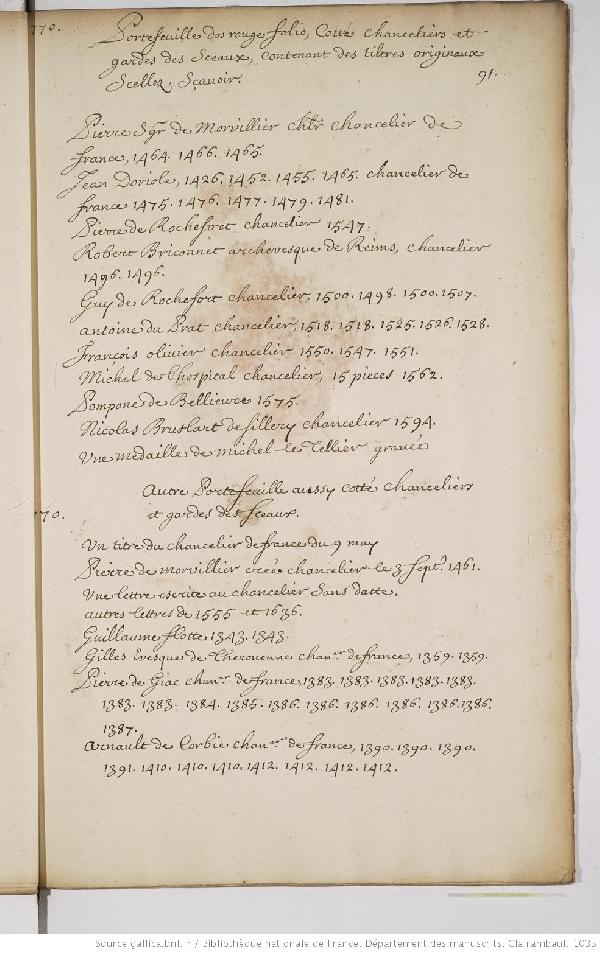 770.
Portefeuille dos rouge folio, Cotté Chanceliers et
gardes des Sceaux, contenant des tiltres originaux
Scellez, Sçavoir.
91.
Pierre Sgr de Morvillier chlr chancelier de
france, 1464. 1466. 1465.
Jean Doriole, 1426. 1452. 1455. 1465. chancelier de
france 1475. 1476. 1477. 1479. 1481.
Pierre de Rochefort chancelier 1547.
Robert Briconnet archevesque de Reims, chancelier
1496. 1496.
Guy de Rochefort chancelier, 1500. 1498. 1500. 1507.
antoine du Prat chancelier, 1518. 1518. 1525. 1526. 1528.
François olivier chancelier 1550. 1547. 1551.
Michel de l'hospital chancelier, 15 pieces 1562.
Pompone de Bellievre 1575.
Nicolas Bruslart de sillery chancelier 1594.
Une medaille de michel le Tellier gravée
Autre Portefeuille aussy cotté Chanceliers
et gardes des sceaux.
770.
Un titre du chancelier de france du 9 may
Pierre de morvillier créée chancelier le 3 sept. 1461.
Une lettre escrite au chancelier Sans datte.
autres lettres de 1555 et 1636.
Guillaume flotte 1343. 1343.
Gilles Evesque de Therouenne chaner de france, 1359. 1359.
Pierre de Giac chaner de france, 1383. 1383. 1383. 1383. 1383.
1383. 1383. 1384. 1385. 1386. 1386. 1386. 1386. 1386. 1386.
1387.
Arnault de Corbie chaner de france, 1390. 1390. 1390.
1391. 1410. 1410. 1410. 1412. 1412. 1412. 1412.
Source gallica.bnf.fr / Bibliothèque nationale de France. Département des manuscrits. Clairambault 1035